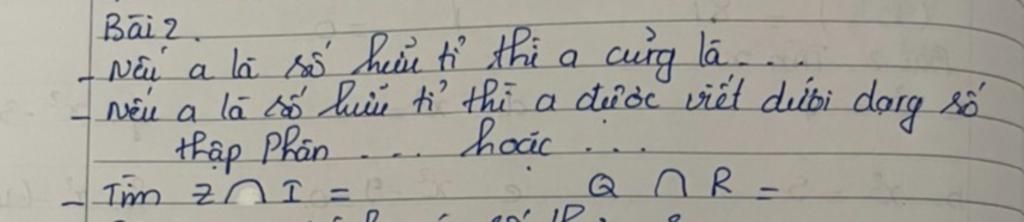 Bài 2.
- Nếu a là số hữu tỉ thì a cũng là ...
- Nếu a là số hữu tỉ thì a được viết dưới dạng số
thập phân .... hoặc ...
- Tìm Z ∩ I = Q ∩ R =